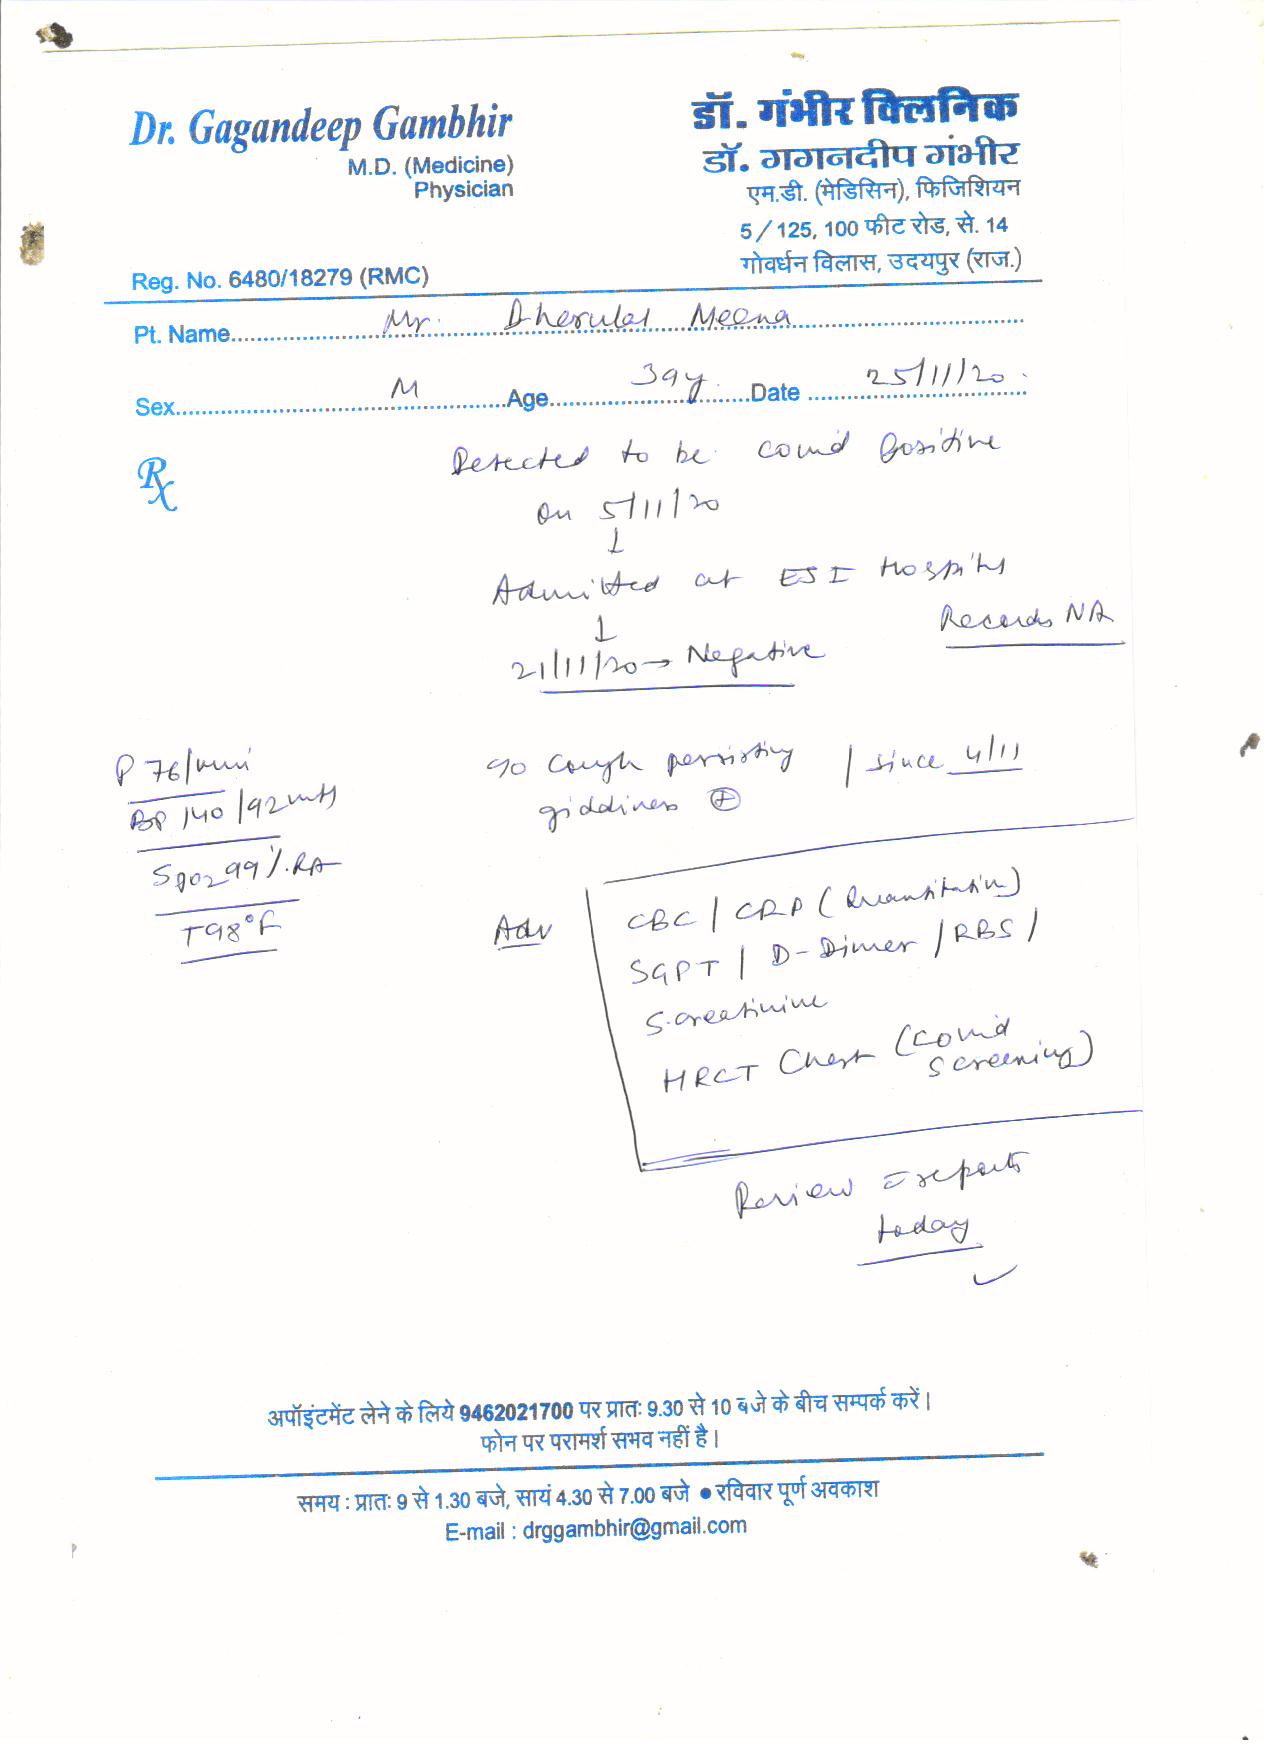 Dr. Gagandeep Gambhir
M.D. (Medicine)
Physician
Reg. No. 6480/18279 (RMC)
डॉ. गंभीर क्लिनिक
डॉ. गगनदीप गंभीर
एम.डी. (मेडिसिन), फिजिशियन
5/125, 100 फीट रोड, से. 14
गोवर्धन विलास, उदयपुर (राज.)
Pt. Name Mr. Dherulal Meena
Sex M Age 39y. Date 25/11/20.
Rx
Detected to be covid positive
on 5/11/20
↓
Admitted at ESI Hospital
Records NA
↓
21/11/20 → Negative
P 76/min
BP 140/92 mmHg
SpO2 99%.RA
T98°F
c/o cough persisting / since 4/11
giddiness ⊕
Adv
CBC / CRP (Quantitative)
SGPT / D-Dimer / RBS /
S.creatinine
HRCT Chest (Covid
screening)
Review c̄ reports
today
अपॉइंटमेंट लेने के लिये 9462021700 पर प्रातः 9.30 से 10 बजे के बीच सम्पर्क करें।
फोन पर परामर्श सभव नहीं है।
समय : प्रातः 9 से 1.30 बजे, सायं 4.30 से 7.00 बजे ● रविवार पूर्ण अवकाश
E-mail : drggambhir@gmail.com